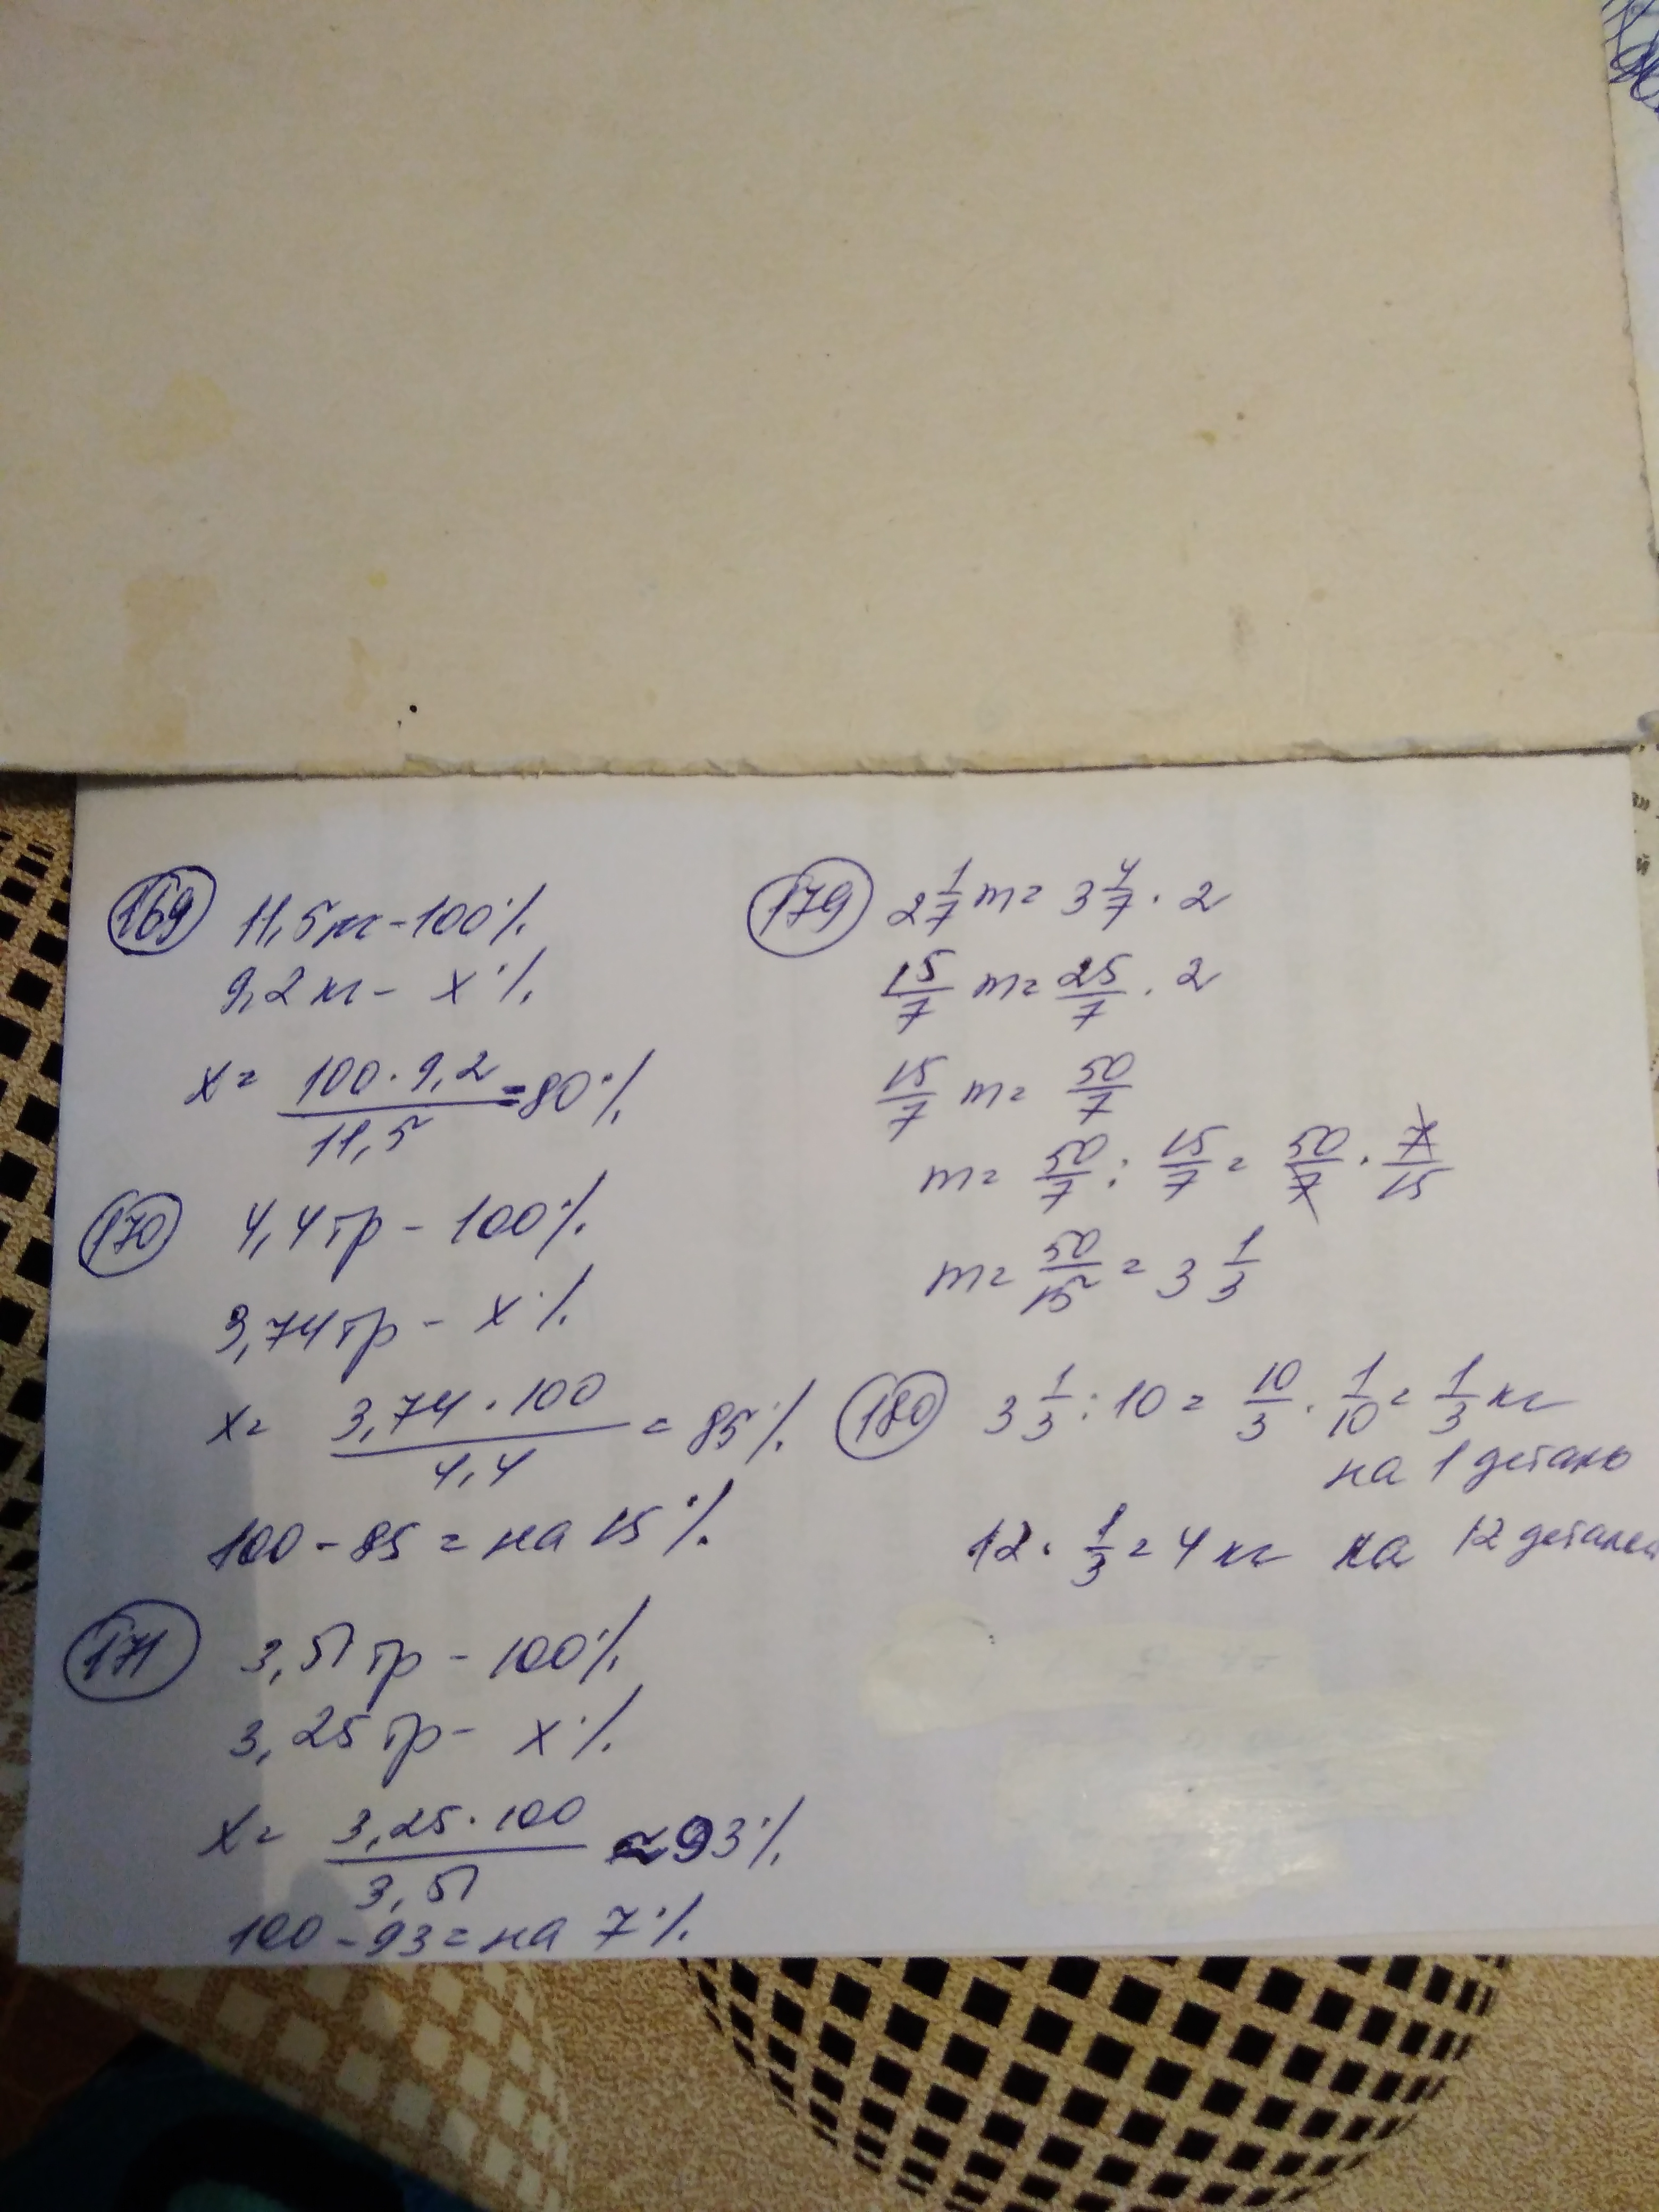 169 11,5 кг - 100%
9,2 кг - x%
x = 100 · 9,2 / 11,5 = 80%
170 4,4 гр - 100%
3,74 гр - x%
x = 3,74 · 100 / 4,4 = 85%
100 - 85 = на 15%
171 3,51 гр - 100%
3,25 гр - x%
x = 3,25 · 100 / 3,51 ≈ 93%
100 - 93 = на 7%
179 2 1/7 m = 3 4/7 · 2
15/7 m = 25/7 · 2
15/7 m = 50/7
m = 50/7 : 15/7 = 50/7 · 7/15
m = 50/15 = 3 1/3
180 3 1/3 : 10 = 10/3 · 1/10 = 1/3 кг
на 1 деталь
12 · 1/3 = 4 кг на 12 деталей